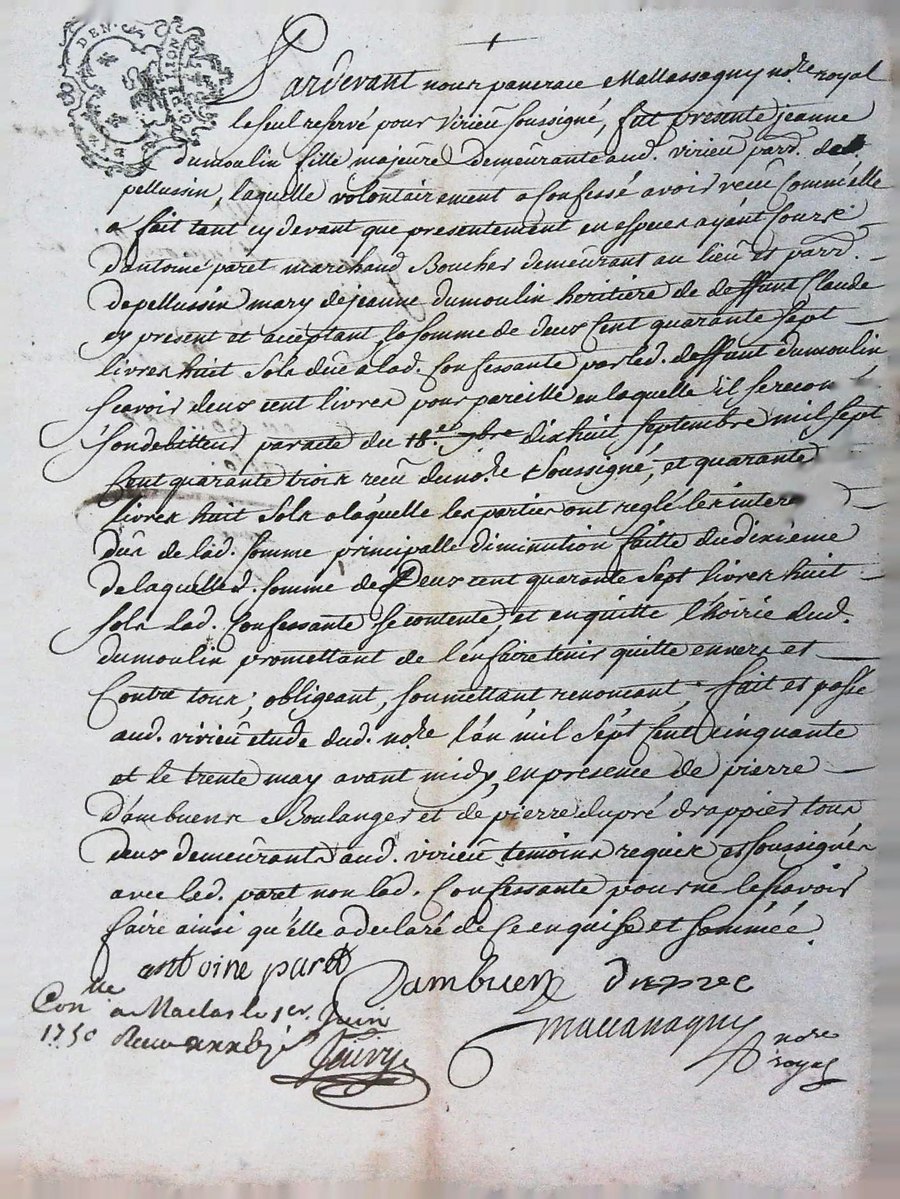 DEN.
LION
Pardevant nous pancrace Mallassagny nore royal
le seul reservé pour virieu soussigné, fut presente jeanne
dumoulin fille majeure demeurante aud. virieu parr. de
pellussin, laquelle volontairement a confessé avoir receu comm'elle
a fait tant cy devant que presentement en especes ayant cours
d'antoine paret marchand Boucher demeurant au lieu et parr.
de pellussin mary de jeanne dumoulin heritiere de deffunt Claude
cy present et acceptant, la somme de deux cent quarante sept
livres huit sols düe a lad. Confessante par led. deffunt dumoulin
scavoir deux cent livres pour pareille en laquelle il se recon
son debitteur par acte du 18.e 7bre dix huit septembre mil sept
Cent quarante trois receu dud. nore soussigné, et quarante
livres huit sols a laquelle les parties ont reglé les intere
dus de lad. somme principalle diminution faitte du dixieme
de laquelle d. somme de Deux cent quarante sept livres huit
sols lad. Confessante se contente, et en quitte l'hoirie dud.
dumoulin promettant de l'en faire tenir quitte envers et
Contre tous; obligeant, soumettant, renoncant, fait et passé
aud. virieu etude dud. nore l'an mil sept cent cinquante
et le trente may avant midy, en presence de pierre
d'ambuens Boulanger et de pierre dupré drappier tous
deux demeurants aud. virieu temoins requis et soussignés
avec led. paret non lad. Confessante pour ne le scavoir
faire ainsi qu'elle a declaré de ce enquise et sommée
antoine paret Dambuens duprec
Conlle a Maclas le 1er. Juin
1750 Receu
nore
royal